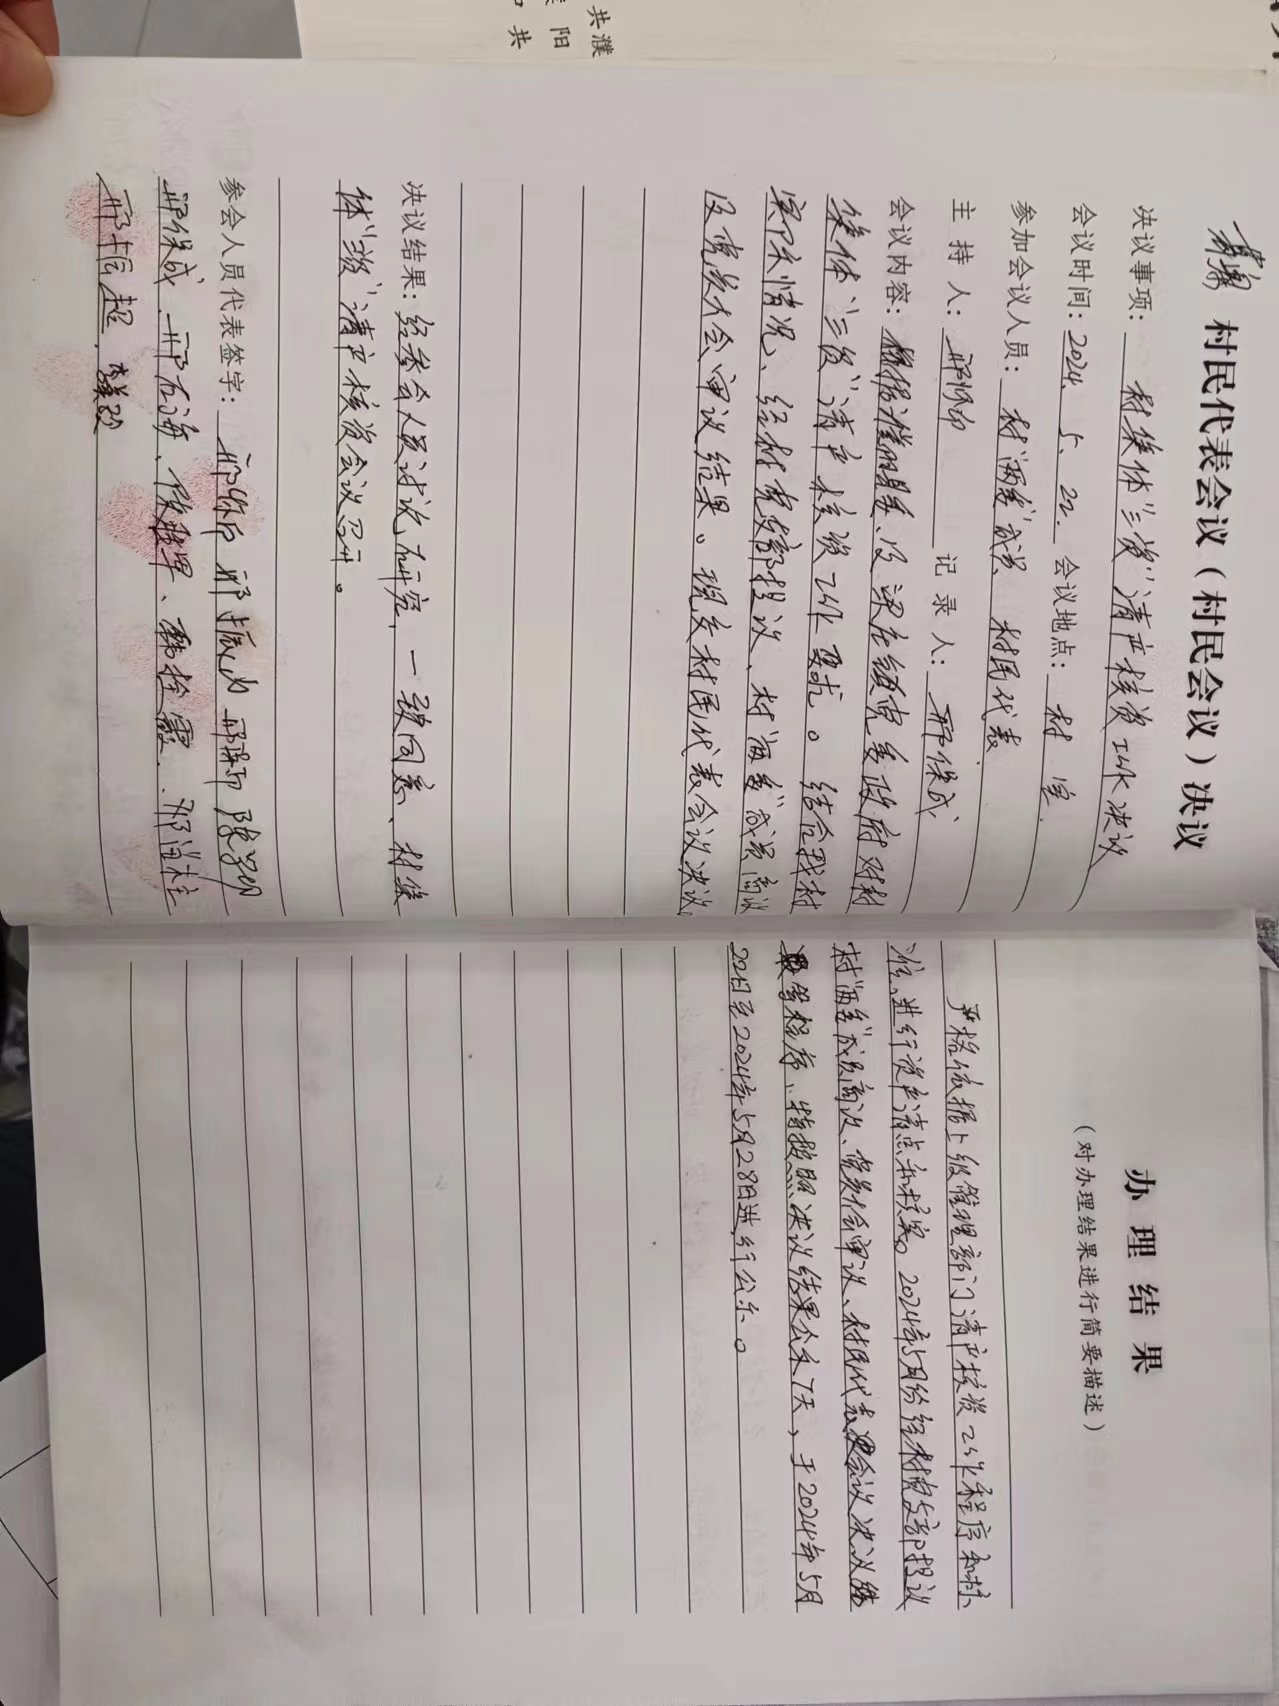 村民代表会议（村民会议）决议
决议事项：村集体“三资”清产核资工作决议
会议时间：2024 5. 22. 会议地点：村室.
参加会议人员：村“两委”成员 村民代表
主持人： 记录人：邢保成
会议内容：根据濮阳县、及梁庄镇党委政府对村
集体“三资”清产核资工作要求。结合我村
实际情况、经村党支部提议、村“两委”成员商议
及党员大会审议结果。现交村民代表会议决议
决议结果：经参会人员讨论研究，一致同意、村集
体“三资”清产核资会议召开。
参会人员代表签字：邢振山
邢保成、邢石海、
邢振超、
办理结果
（对办理结果进行简要描述）
严格依据上级管理部门清产核资工作程序和标
准、进行资产清点和核实。2024年5月份经村党支部提议
村“两委”成员商议、党员大会审议、村民代表会议决议
程序、特按照决议结果公示7天，于2024年5月
22日至2024年5月28日进行公示。
共濮
阳
共